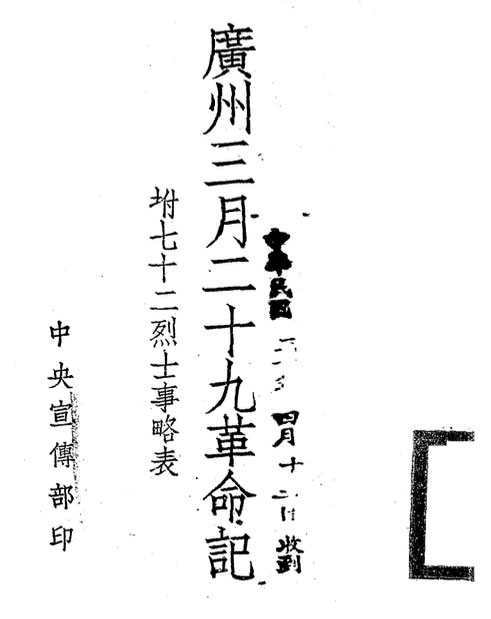 中華民國 四月十二日收到
廣州三月二十九革命記
坿七十二烈士事略表
中央宣傳部印